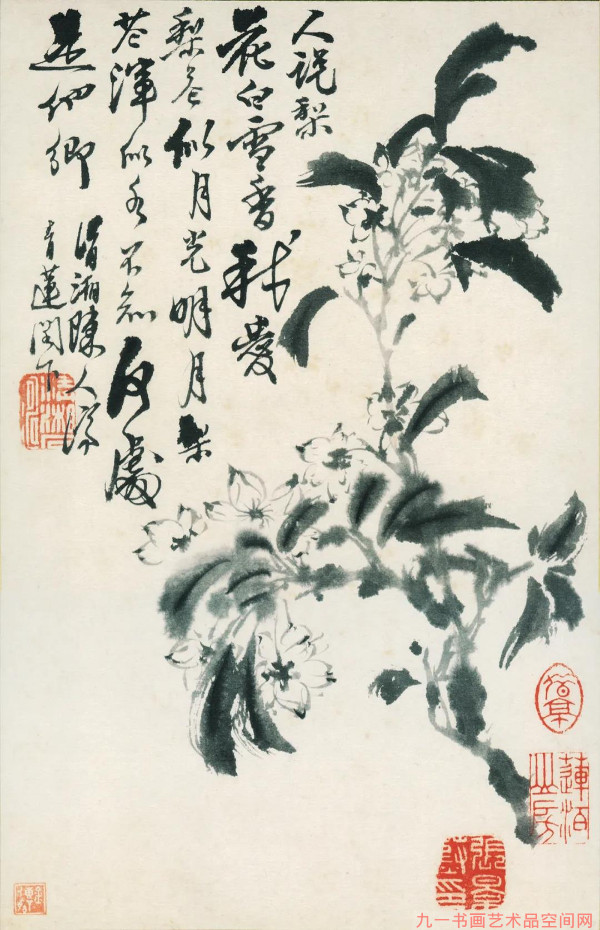 人說梨
花白雪香我愛
梨花似月光明月梨
花渾似水不知何處
是他鄉
清湘陳人濟
青蓮閣下
九一书画艺术品空间网